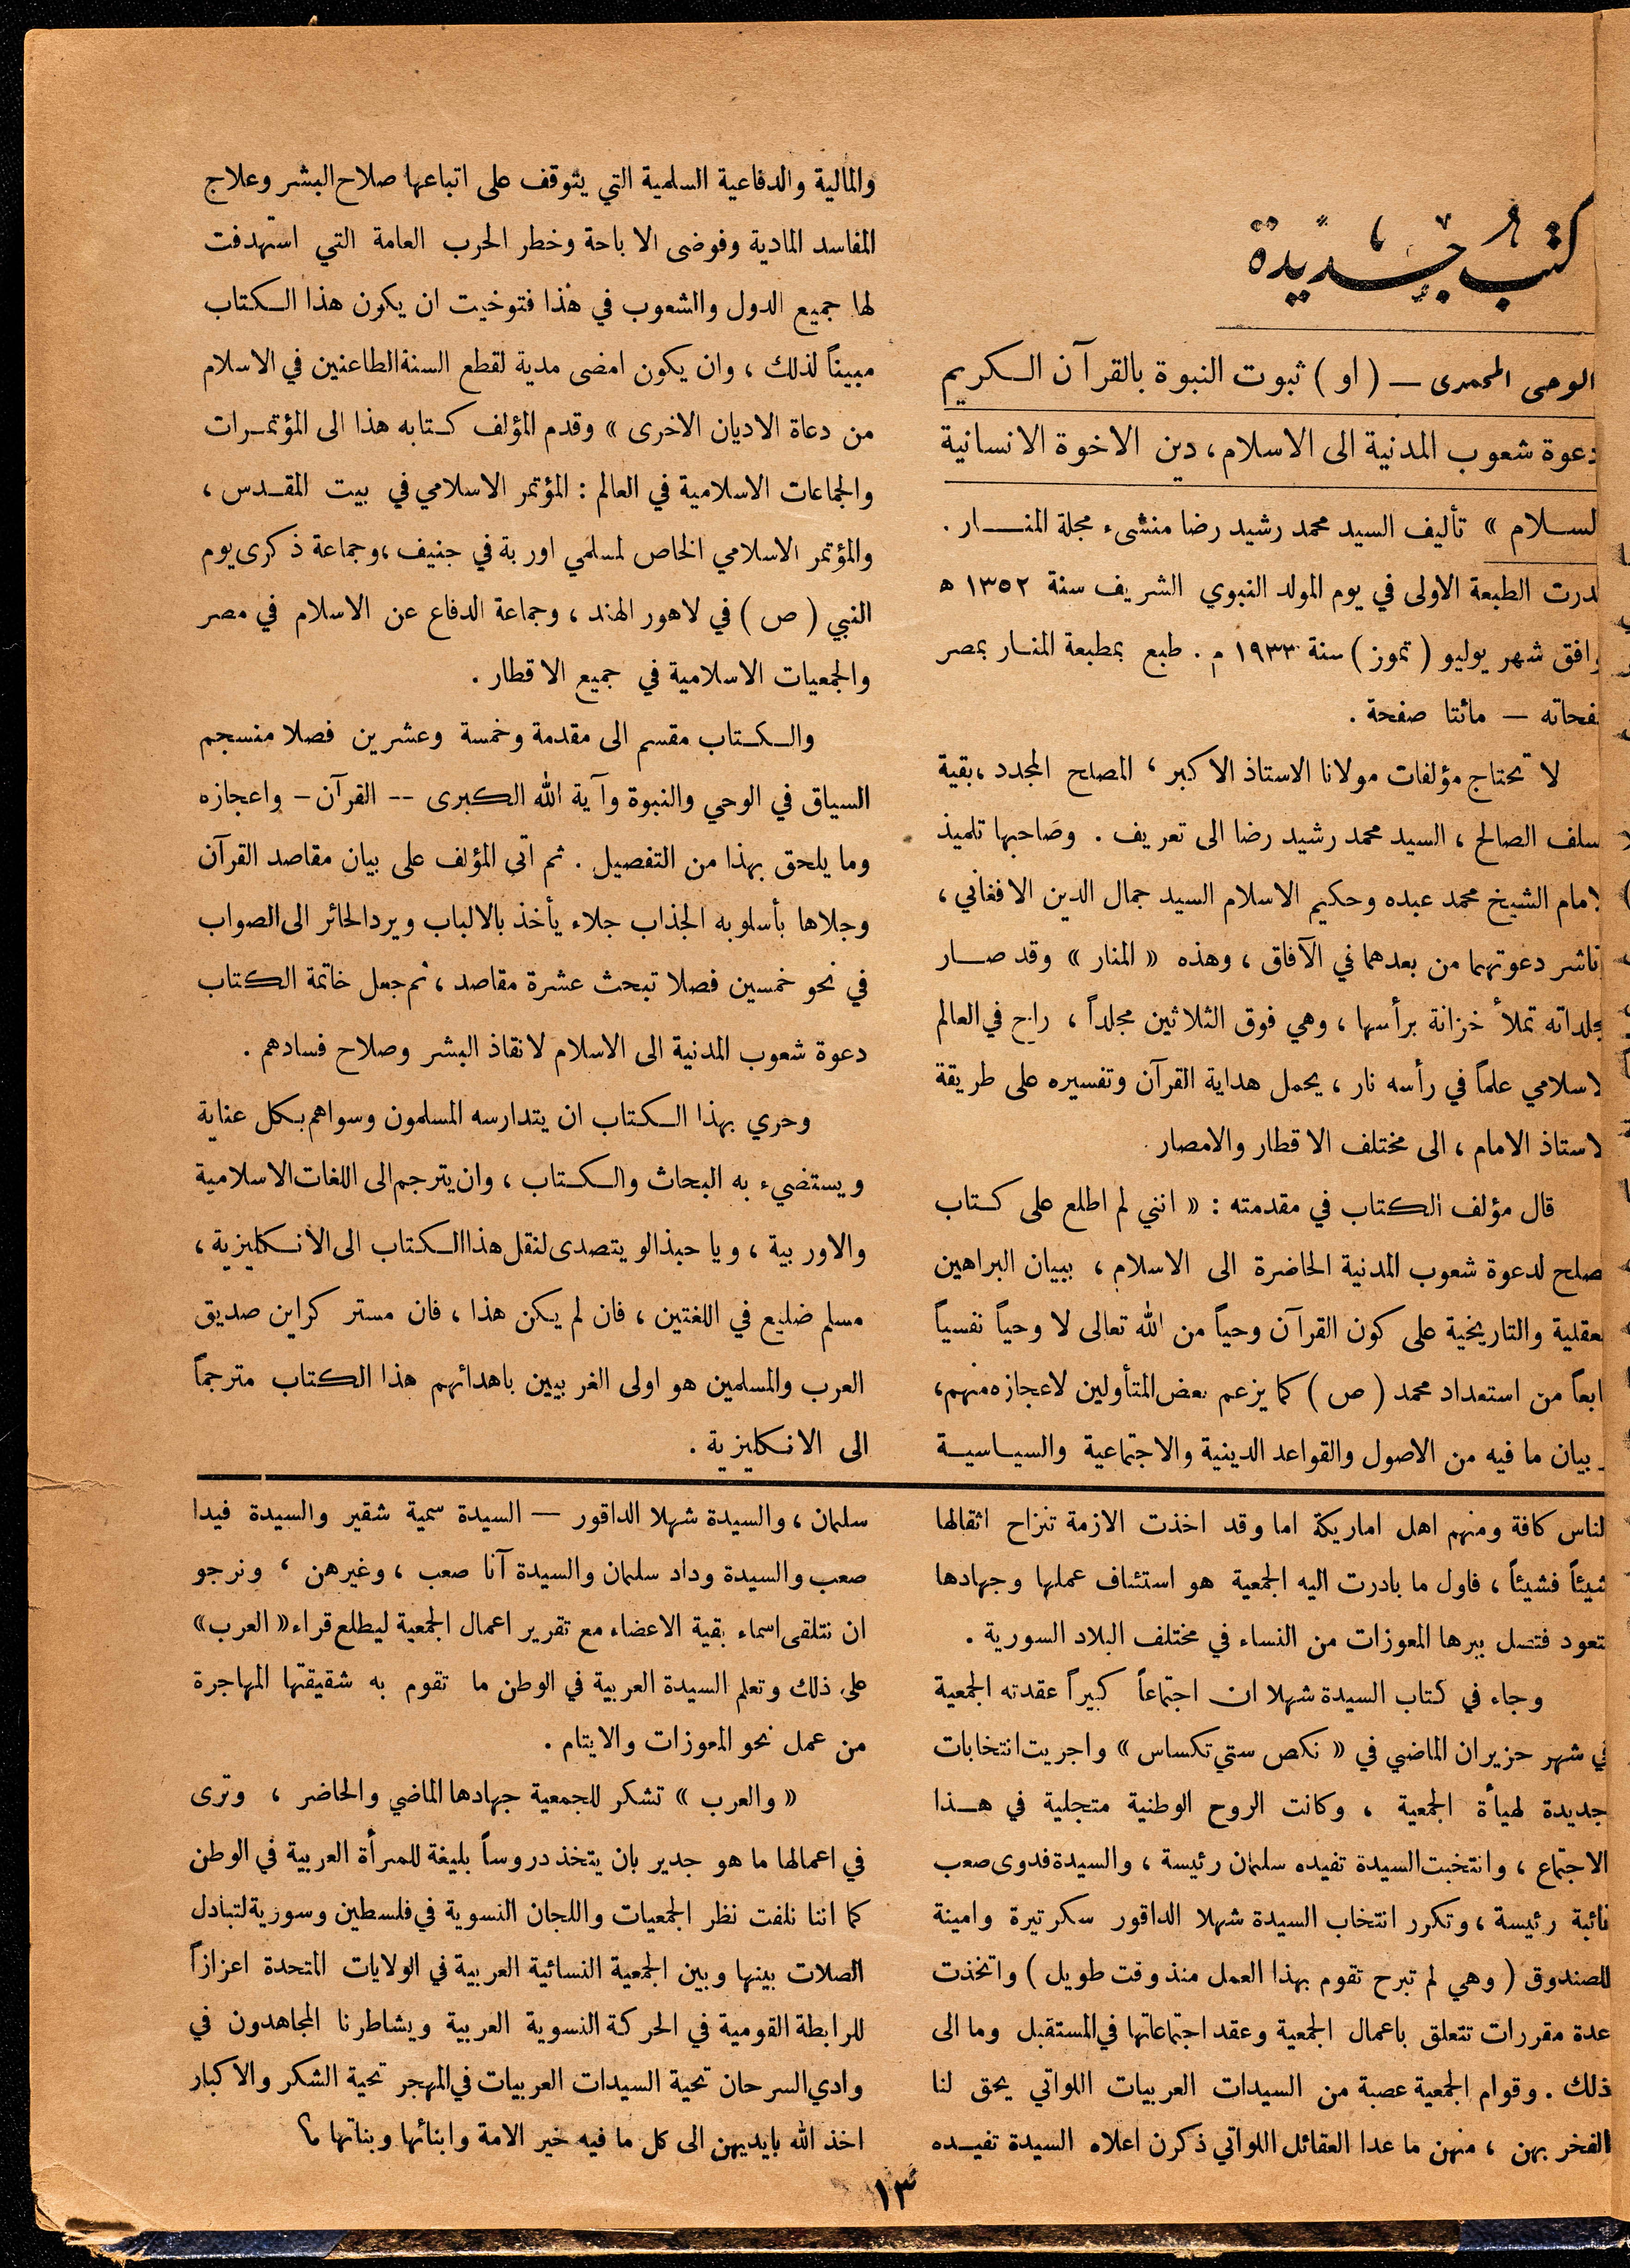 كتب جديدة
الوحى المحمدى — ( او ) ثبوت النبوة بالقرآن الكريم
دعوة شعوب المدنية الى الاسلام، دين الاخوة الانسانية
لسلام » تأليف السيد محمد رشيد رضا منشىء مجلة المنار .
درت الطبعة الاولى في يوم المولد النبوي الشريف سنة ١٣٥٢ ه
رافق شهر يوليو ( تموز ) سنة ١٩٣٣ م . طبع بمطبعة المنار بمصر
فحاته — مائتا صفحة .
لا تحتاج مؤلفات مولانا الاستاذ الاكبر ، المصلح المجدد ، بقية
سلف الصالح ، السيد محمد رشيد رضا الى تعريف . وصاحبها تلميذ
لامام الشيخ محمد عبده وحكيم الاسلام السيد جمال الدين الافغاني ،
ناشر دعوتهما من بعدهما في الآفاق ، وهذه « المنار » وقد صار
جلداته تملأ خزانة برأسها ، وهي فوق الثلاثين مجلداً ، راح في العالم
لاسلامي علماً في رأسه نار ، يحمل هداية القرآن وتفسيره على طريقة
لاستاذ الامام ، الى مختلف الاقطار والامصار .
قال مؤلف الكتاب في مقدمته : « انني لم اطلع على كتاب
صلح لدعوة شعوب المدنية الحاضرة الى الاسلام ، ببيان البراهين
لعقلية والتاريخية على كون القرآن وحياً من الله تعالى لا وحياً نفسياً
ابعاً من استعداد محمد ( ص ) كما يزعم بعض المتأولين لاعجازه منهم،
بيان ما فيه من الاصول والقواعد الدينية والاجتماعية والسياسية
والمالية والدفاعية السلمية التي يتوقف على اتباعها صلاح البشر وعلاج
المفاسد المادية وفوضى الاباحة وخطر الحرب العامة التي استهدفت
لها جميع الدول والشعوب في هذا فتوخيت ان يكون هذا الكتاب
مبيناً لذلك ، وان يكون امضى مدية لقطع السنة الطاعنين في الاسلام
من دعاة الاديان الاخرى » وقدم المؤلف كتابه هذا الى المؤتمرات
والجماعات الاسلامية في العالم : المؤتمر الاسلامي في بيت المقدس ،
والمؤتمر الاسلامي الخاص لمسلمي اوربة في جنيف ، وجماعة ذكرى يوم
النبي ( ص ) في لاهور الهند ، وجماعة الدفاع عن الاسلام في مصر
والجمعيات الاسلامية في جميع الاقطار .
والكتاب مقسم الى مقدمة وخمسة وعشرين فصلا منسجم
السياق في الوحي والنبوة وآية الله الكبرى -- القرآن - واعجازه
وما يلحق بهذا من التفصيل . ثم اتى المؤلف على بيان مقاصد القرآن
وجلاها بأسلوبه الجذاب جلاء يأخذ بالالباب ويرد الحائر الى الصواب
في نحو خمسين فصلا تبحث عشرة مقاصد ، ثم جعل خاتمة الكتاب
دعوة شعوب المدنية الى الاسلام لانقاذ البشر وصلاح فسادهم .
وحري بهذا الكتاب ان يتدارسه المسلمون وسواهم بكل عناية
ويستضيء به البحاث والكتاب ، وان يترجم الى اللغات الاسلامية
والاوربية ، ويا حبذا لو يتصدى لنقل هذا الكتاب الى الانكليزية ،
مسلم ضليع في اللغتين ، فان لم يكن هذا ، فان مستر كراين صديق
العرب والمسلمين هو اولى الغربيين باهدائهم هذا الكتاب مترجماً
الى الانكليزية .
لناس كافة ومنهم اهل اماريكة اما وقد اخذت الازمة تنزاح اثقالها
شيئاً فشيئاً ، فاول ما بادرت اليه الجمعية هو استئناف عملها وجهادها
لتعود فتصل ببرها المعوزات من النساء في مختلف البلاد السورية .
وجاء في كتاب السيدة شهلا ان اجتماعاً كبيراً عقدته الجمعية
في شهر حزيران الماضي في « نكص ستي تكساس » واجريت انتخابات
جديدة لهيأة الجمعية ، وكانت الروح الوطنية متجلية في هذا
الاجتماع ، وانتخبت السيدة تفيده سلمان رئيسة ، والسيدة فدوى صعب
نائبة رئيسة ، وتكرر انتخاب السيدة شهلا الداقور سكرتيرة وامينة
للصندوق ( وهي لم تبرح تقوم بهذا العمل منذ وقت طويل ) واتخذت
عدة مقررات تتعلق باعمال الجمعية وعقد اجتماعاتها في المستقبل وما الى
ذلك . وقوام الجمعية عصبة من السيدات العربيات اللواتي يحق لنا
الفخر بهن ، منهن ما عدا العقائل اللواتي ذكرن اعلاه السيدة تفيده
سلمان ، والسيدة شهلا الداقور — السيدة سمية شقير والسيدة فيدا
صعب والسيدة وداد سلمان والسيدة آنا صعب ، وغيرهن ، ونرجو
ان نتلقى اسماء بقية الاعضاء مع تقرير اعمال الجمعية ليطلع قراء « العرب »
على ذلك وتعلم السيدة العربية في الوطن ما تقوم به شقيقتها المهاجرة
من عمل نحو المعوزات والايتام .
« والعرب » تشكر للجمعية جهادها الماضي والحاضر ، وترى
في اعمالها ما هو جدير بان يتخذ دروساً بليغة للمرأة العربية في الوطن
كما اننا نلفت نظر الجمعيات واللجان النسوية في فلسطين وسورية لتبادل
الصلات بينها وبين الجمعية النسائية العربية في الولايات المتحدة اعزازاً
للرابطة القومية في الحركة النسوية العربية ويشاطرنا المجاهدون في
وادي السرحان تحية السيدات العربيات في المهجر تحية الشكر والاكبار
اخذ الله بايديهن الى كل ما فيه خير الامة وابنائها وبناتها ؟
١٣